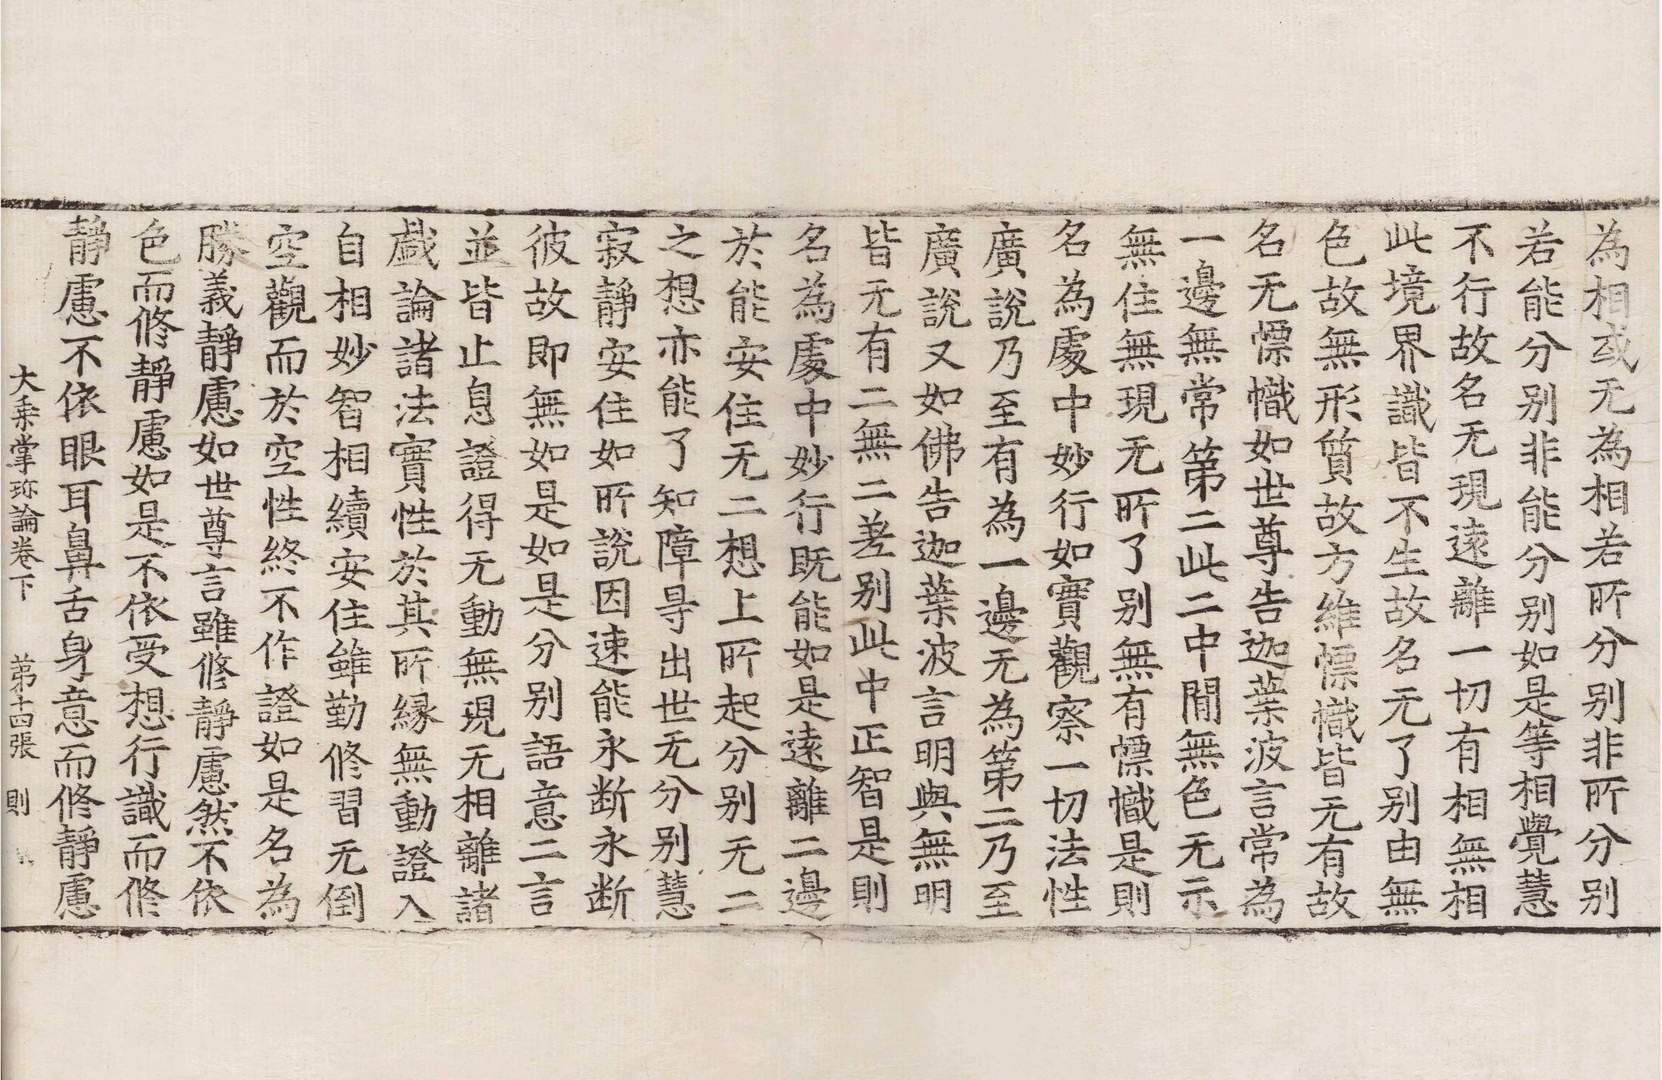 為相或无為相若所分別非所分別
若能分別非能分別如是等相覺慧
不行故名无現遠離一切有相無相
此境界識皆不生故名无了別由無
色故無形質故方維慓幟皆无有故
名无慓幟如世尊告迦葉波言常為
一邊無常第二此二中間無色无示
無住無現无所了別無有慓幟是則
名為處中妙行如實觀察一切法性
廣說乃至有為一邊无為第二乃至
廣說又如佛告迦葉波言明與無明
皆无有二無二差別此中正智是則
名為處中妙行既能如是遠離二邊
於能安住无二想上所起分別无二
之想亦能了知障㝵出世无分別慧
寂靜安住如所說因速能永斷永斷
彼故即無如是如是分別語意二言
並皆止息證得无動無現无相離諸
戲論諸法實性於其所緣無動證入
自相妙智相續安住雖勤修習无倒
空觀而於空性終不作證如是名為
勝義靜慮如世尊言雖修靜慮然不依
色而修靜慮如是不依受想行識而修
靜慮不依眼耳鼻舌身意而修靜慮
大乘掌珎論卷下 第十四張 則